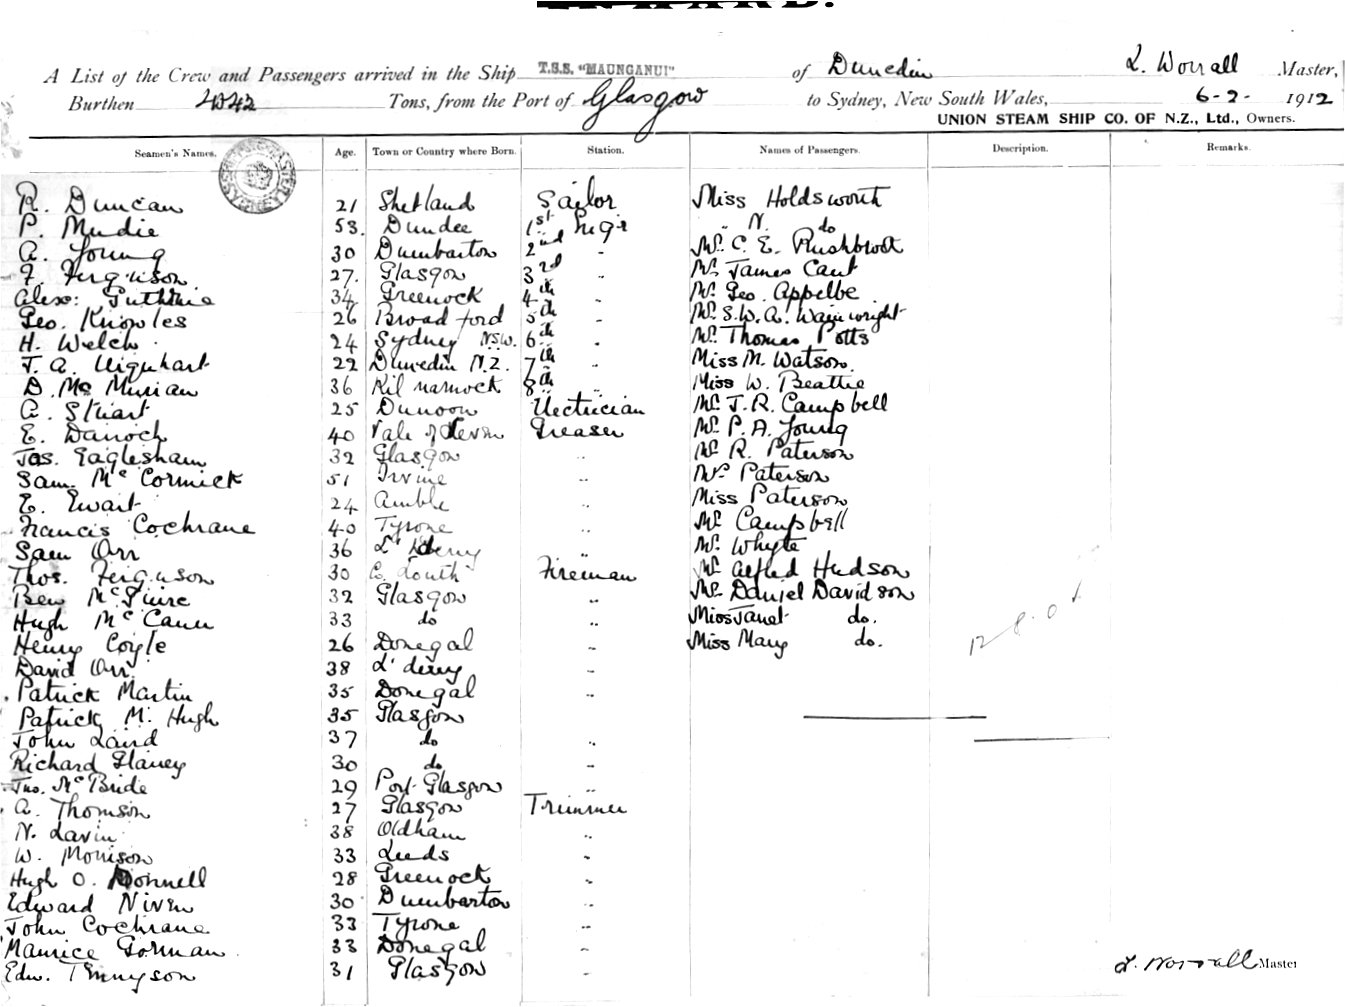 INWARD.
A List of the Crew and Passengers arrived in the Ship T.S.S. "MAUNGANUI" of Dunedin L. Worrall Master,
Burthen Tons, from the Port of Glasgow to Sydney, New South Wales, 6-2- 1912
UNION STEAM SHIP CO. OF N.Z., Ltd., Owners.
Seamen's Names. Age. Town or Country where Born. Station. Names of Passengers. Description. Remarks.
R. Duncan 21 Shetland Sailor Miss Holdsworth
P. Mudie 53. Dundee 1st Engr " N. do
A. Young 30 Dumbarton 2nd " Mr. C. E. Rushbrook
F. Ferguson. 27. Glasgow 3rd " Mr. James Cant
Alex: Guthrie 34 Greenock 4th " Mr. Geo. Appelbe
Geo. Knowles 26 Broadford 5th " Mr. S.W.A. Wainwright
H. Welch 24 Sydney N.S.W. 6th " Mr. Thomas Potts
J. A. Urquhart 22 Dunedin N.Z. 7th " Miss M. Watson.
D. Mc 36 Kilmarnock 8th " Miss W. Beattie
A. Stuart 25 Dunoon Electrician Mr. J. R. Campbell
E. Darroch 40 Vale of Leven Greaser Mr. P. A. Young
Jas. Eaglesham 32 Glasgow " Mr. R. Paterson
Sam Mc Cormick 51 Irvine " Mrs Paterson
E. Ewart 24 Amble " Miss Paterson
Francis Cochrane 40 Tyrone " Mr. Campbell
Sam Orr 36 L'derry " Mr. Whyte
Thos. Ferguson 30 Co. Louth Fireman Mr. Alfred Hudson
Ben McGuire 32 Glasgow " Mr. Daniel Davidson
Hugh McCann 33 do " Miss Janet do.
Henry Coyle 26 Donegal " Miss Mary do.
David Orr. 38 L'derry "
Patrick Martin 35 Donegal "
Patrick Mc Hugh 35 Glasgow
John Laird 37 do "
Richard Glancy 30 do "
Jas. McBride 29 Port Glasgow "
A. Thomson 27 Glasgow Trimmer
N. Lavin 38 Oldham "
W. Morrison 33 Leeds "
Hugh O. Donnell 28 Greenock "
Edward Niven 30 Dumbarton "
John Cochrane 33 Tyrone "
Maurice Gorman 33 Donegal "
Edw. Tennyson 31 Glasgow "
L. Worrall Master